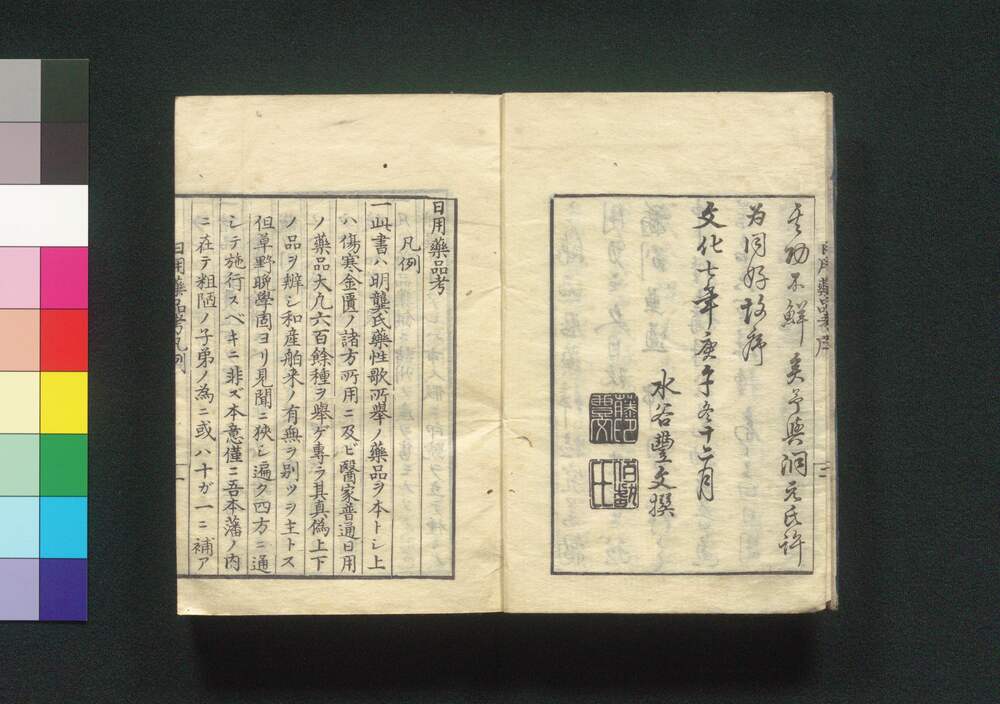 其功不鮮矣予與洞元氏許
为同好故序
文化七年庚午冬十二月
水谷豐文撰
日用藥品考
凡例
一此書ハ明龔氏藥性歌所舉ノ藥品ヲ本トシ上
ハ傷寒金匱ノ諸方所用ニ及ビ醫家普通日用
ノ藥品大凡六百餘種ヲ舉ゲ專ラ其真偽上下
ノ品ヲ辨シ和産舶来ノ有無ヲ別ツヲ主トス
但草野晚學固ヨリ見聞ニ狹シ遍ク四方ニ通
シテ施行スベキニ非ズ本意僅ニ吾本藩ノ内
ニ在テ粗陋ノ子弟ノ為ニ或ハ十ガ一ニ補ア
日用藥品考凡例